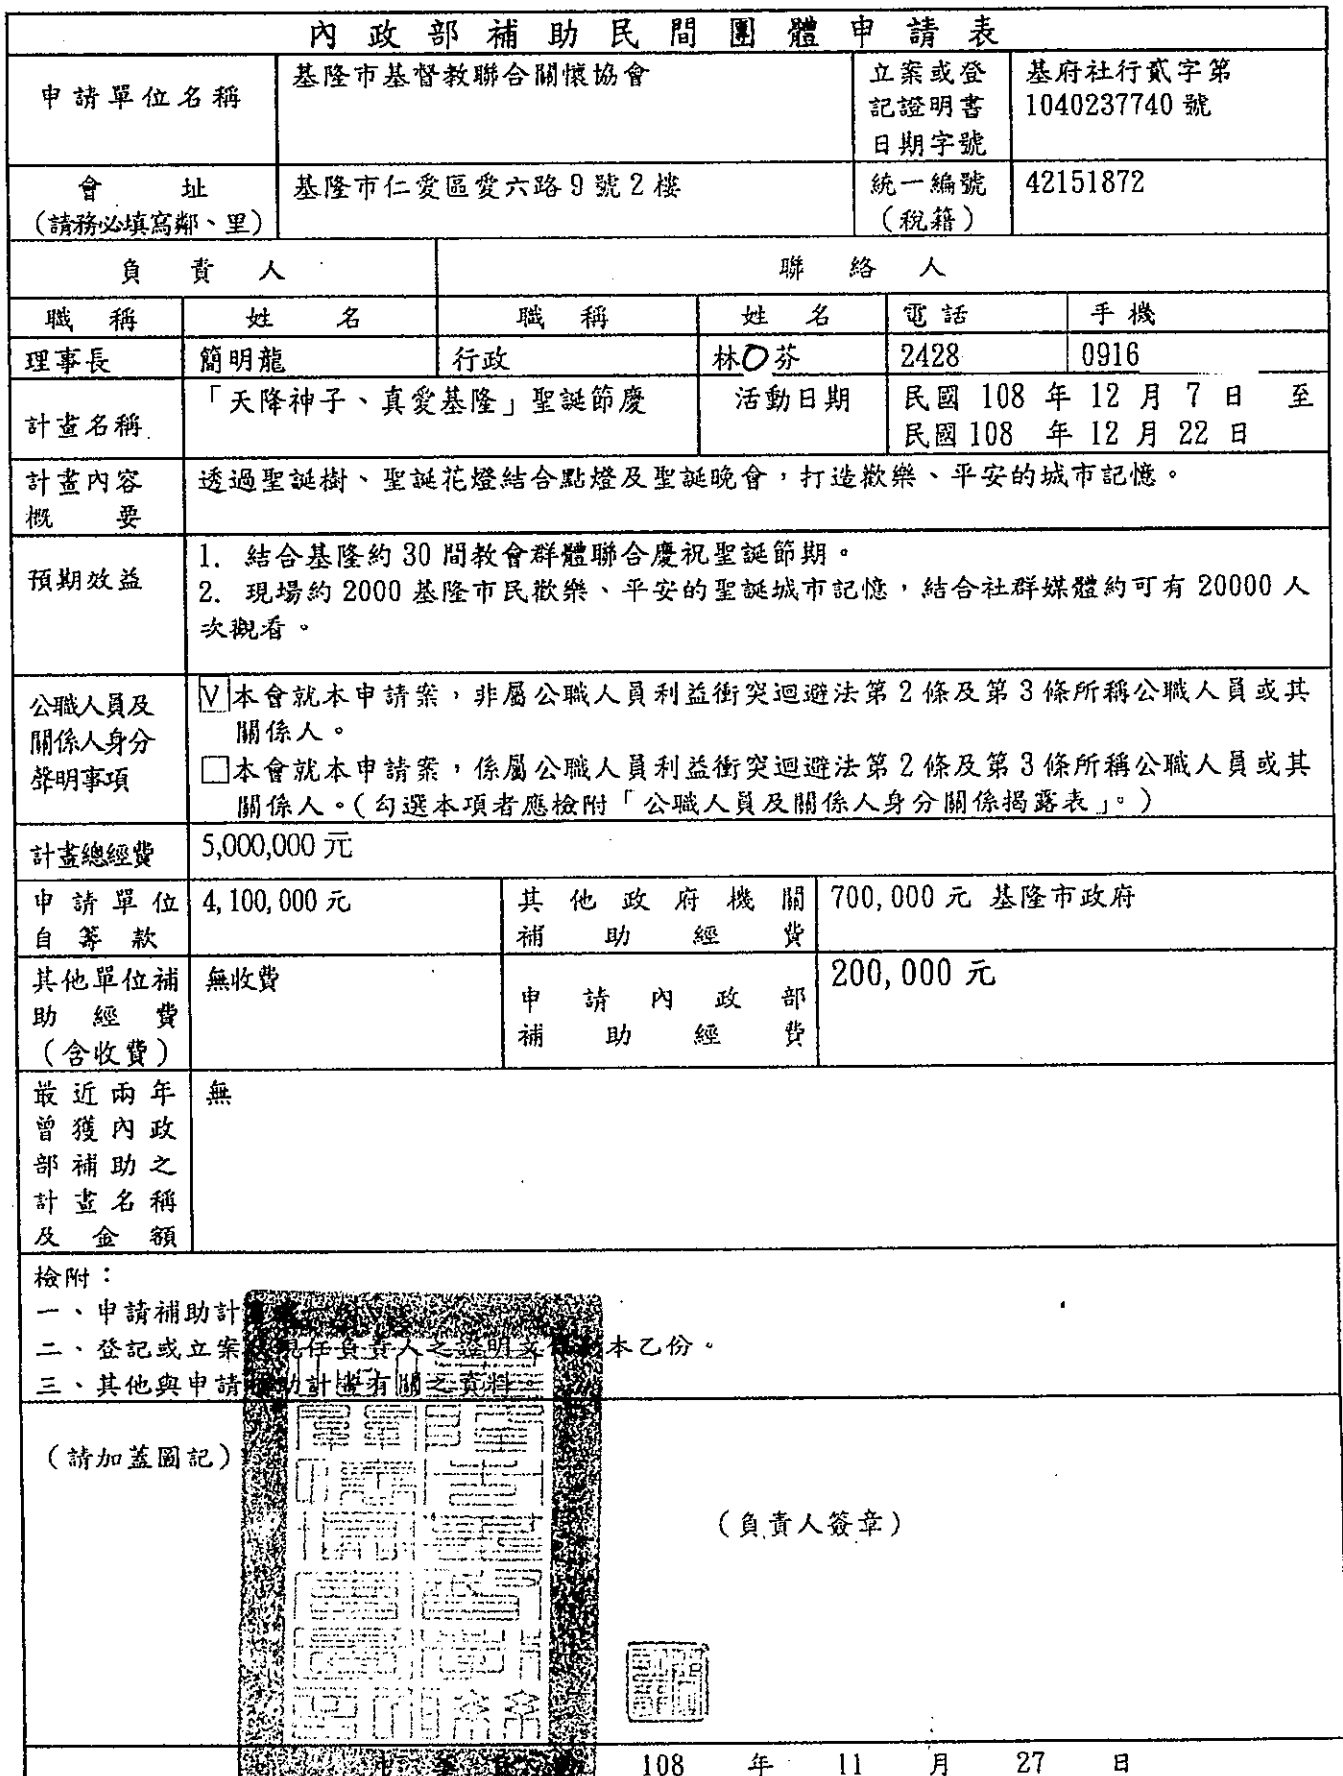 內政部補助民間團體申請表
申請單位名稱
基隆市基督教聯合關懷協會
立案或登
記證明書
日期字號
基府社行貳字第
1040237740 號
會址
(請務必填寫鄰、里)
基隆市仁愛區愛六路9號2樓
統一編號
(稅籍)
42151872
負責人
聯絡人
職稱
姓名
職稱
姓名
電話
手機
理事長
簡明龍
行政
林O芬
2428
0916
計畫名稱
「天降神子、真愛基隆」聖誕節慶
活動日期
民國 108 年 12 月 7 日 至
民國 108 年 12 月 22 日
計畫內容
概要
透過聖誕樹、聖誕花燈結合點燈及聖誕晚會,打造歡樂、平安的城市記憶。
預期效益
1. 結合基隆約 30 間教會群體聯合慶祝聖誕節期。
2. 現場約 2000 基隆市民歡樂、平安的聖誕城市記憶,結合社群媒體約可有 20000 人
次觀看。
公職人員及
關係人身分
聲明事項
V本會就本申請案,非屬公職人員利益衝突迴避法第2條及第3條所稱公職人員或其
關係人。
□本會就本申請案,係屬公職人員利益衝突迴避法第2條及第3條所稱公職人員或其
關係人。(勾選本項者應檢附「公職人員及關係人身分關係揭露表」。)
計畫總經費
5,000,000 元
申請單位
自籌款
4,100,000 元
其他政府機關
補助經費
700,000 元 基隆市政府
其他單位補
助經費
(含收費)
無收費
申請內政部
補助經費
200,000 元
最近兩年
曾獲內政
部補助之
計畫名稱
及金額
無
檢附:
一、申請補助計
二、登記或立案 現任負責人之證明文 本乙份。
三、其他與申請 助計畫有關之資料。
(請加蓋圖記)
(負責人簽章)
108 年 11 月 27 日